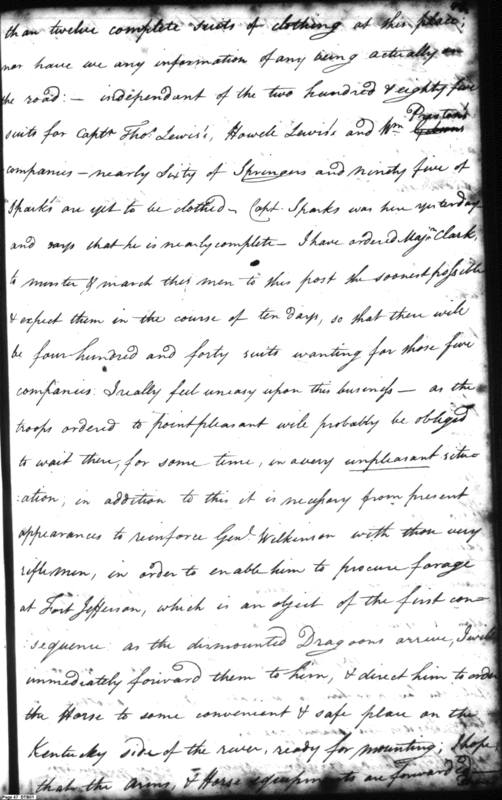 than twelve complete suits of clothing at this place;
nor have we any information of any being actually on
the road: — independant of the two hundred & eighty five
Preston's
suits for Captn Thos Lewis's, Howell Lewis's and Wm
companies — nearly Sixty of Springers and ninety five of
Spark's are yet to be clothed — Capt. Sparks was here yesterday
and says that he is nearly complete — I have ordered Majr Clark,
to muster, & march these men to this post the soonest possible
& expect them in the course of ten days, so that there will
be four hundred and forty suits wanting for those five
companies: I really feel uneasy upon this business — as the
troops ordered to point pleasant will probably be obliged
to wait there, for some time, in a very unpleasant situ-
:ation, in addition to this it is necessary from present
appearances to reinforce Genl Wilkinson with those very
riflemen, in order to enable him to procure forage
at Fort Jefferson, which is an object of the first con-
sequence: as the dismounted Dragoons arrive, I will
immediately forward them to him, & direct him to order
the Horse to some convenient & safe place on the
Kentucky side of the river, ready for mounting; I hope
that the arms, & Horse equipments are forward